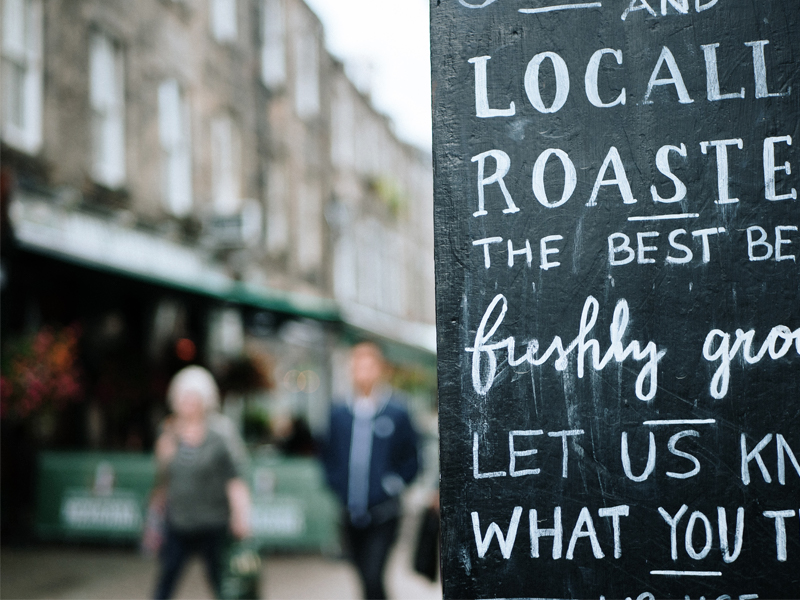 AND
LOCALL
ROASTE
THE BEST BE
freshly groo
LET US KN
WHAT YOU T